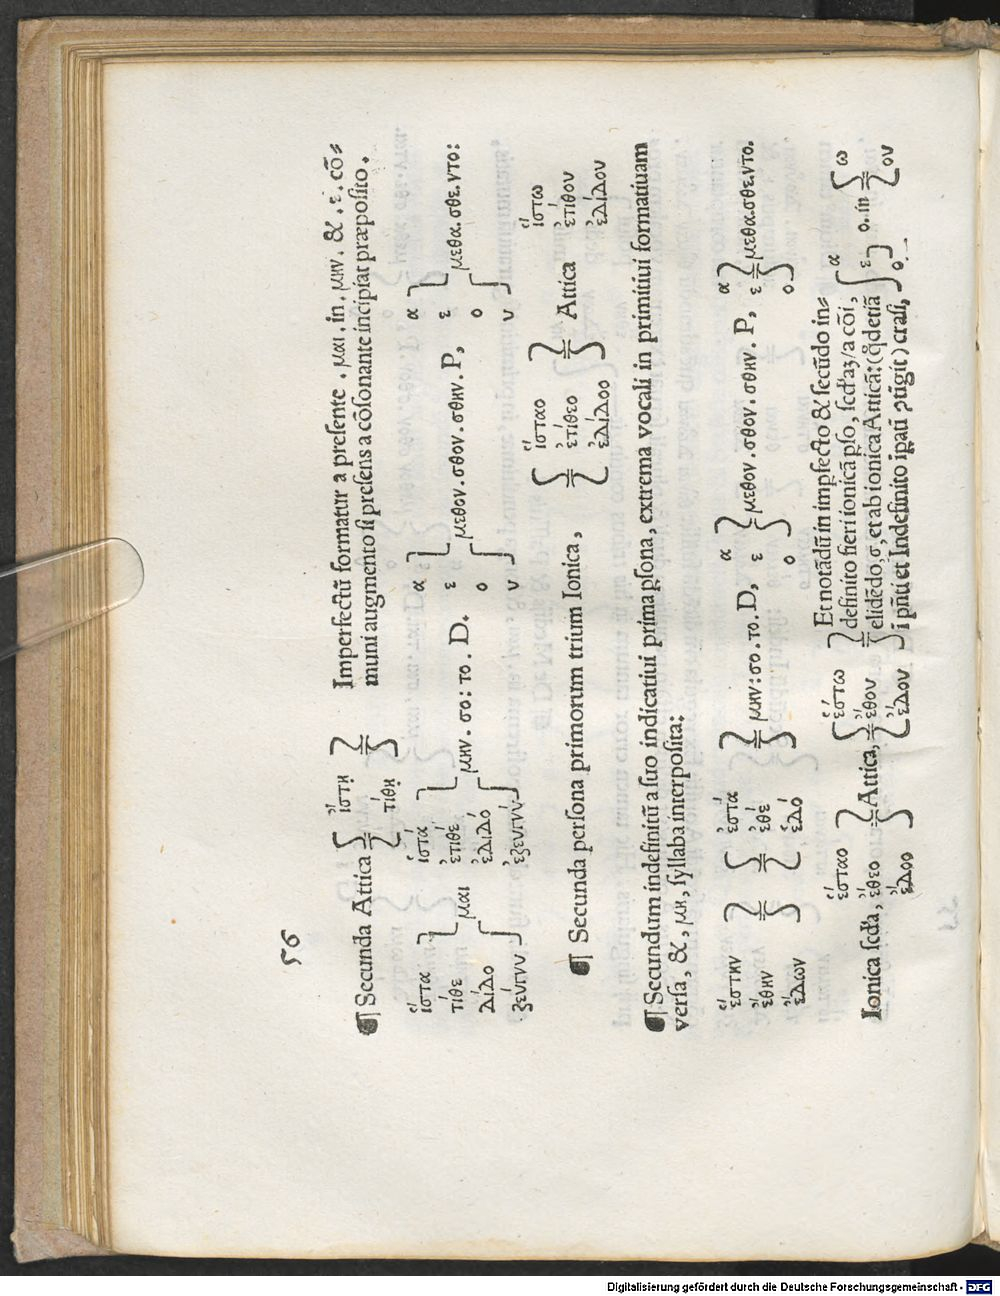 56
¶ Secunda Attica { ἵστῃ τίθῃ } Imperfectũ formatur a presente . μαι . in . μην . & . ε . cõ⸗
muni augmento si presens a cõsonante incipiat præposito .
ἵστα
τίθε
δίδο
ζεύγνυ
μαι
ἱστά
ἐτιθέ
ἐδιδό
ἐζευγνύ
μην . σο : το . D .
α
ε
ο
υ
μεθον . σθον . σθην . P ,
α
ε
ο
υ
μεθα . σθε . ντο :
¶ Secunda persona primorum trium Ionica ,
ἵσταο
ἐτίθεο
ἐδίδοο
Attica
ἵστω
ἐτίθου
ἐδίδου
¶ Secundum indefinitũ a suo indicatiui prima p̱sona , extrema vocali in primitiui formatiuam
versa , & , μη , syllaba interposita :
ἕστην
ἔθην
ἔδων
ἑστά
ἐθέ
ἐδό
μην : σο . το . D ,
α
ε
ο
μεθον . σθον . σθην . P ,
α
ε
ο
μεθα . σθε . ντο .
Ionica scd'a ,
ἕσταο
ἔθεο
ἔδοο
Attica ,
ἕστω
ἔθου
ἔδου
Et notãdũ in imp̱fecto & secũdo in⸗
definito fieri ionicã p̱so ,
elidẽdo , σ , et ab ionica Atticã :
et Indefinito crasi ,
α
ε
ο
ο . in
ω
ου